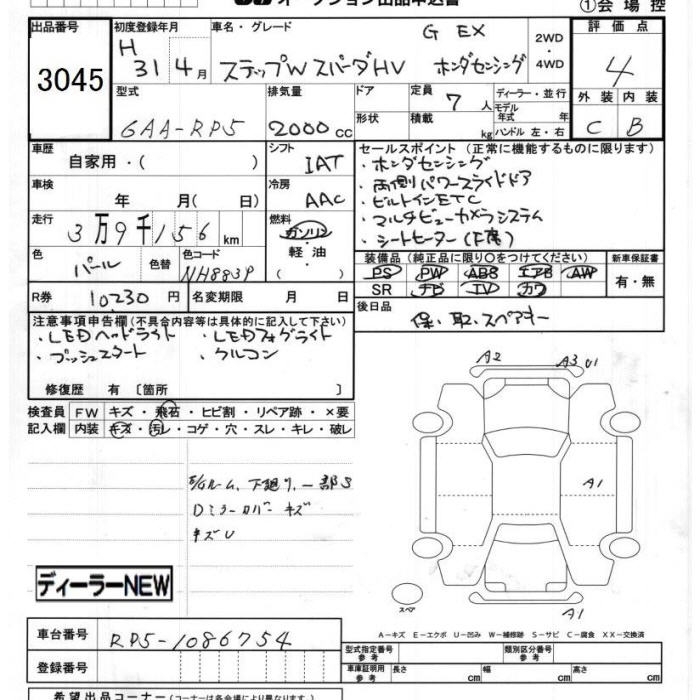 オークション出品申込書
①会場控
出品番号 初度登録年月 車名・グレード 評価点
3045
H 31 4月
G EX
ステップW スパーダHV ホンダセンシング
2WD・4WD
4
型式 排気量 ドア 定員 7人 ディーラー・並行 外装 内装
GAA-RP5 2000cc 形状 積載 kg モデル年式 年 ハンドル 左・右 C B
車歴 自家用・( )
シフト IAT
セールスポイント(正常に機能するものに限ります)
・ホンダセンシング
・両側パワースライドドア
・ビルトインETC
・マルチビューカメラシステム
・シートヒーター(F席)
車検 年 月( 日)
冷房 AAC
走行 3万9千156km
燃料 ガソリン・軽油・( )
色 パール 色替 色コード NH883P
装備品(純正品に限り○をつけてください) 新車保証書
PS PW ABS エアB AW 有・無
SR ナビ TV カワ
R券 10230円 名変期限 月 日
後日品 保、取、スペアキー
注意事項申告欄(不具合内容等は具体的に記入して下さい)
・LEDヘッドライト ・LEDフォグライト
・プッシュスタート ・クルコン
修復歴 有〔箇所 〕
検査員記入欄
FW キズ・飛石・ヒビ割・リペア跡・×要
内装 キズ・汚レ・コゲ・穴・スレ・キレ・破レ
E/Gルーム、下廻り、一部S
Dミラーカバー キズ
キズU
A2 A3 U1
A1
A1
スペア
ディーラーNEW
A-キズ E-エクボ U-凹み W-補修跡 S-サビ C-腐食 XX-交換済
車台番号 RP5-1086754
型式指定番号参考 類別区分番号参考
登録番号
車庫証明用参考 長さ cm 幅 cm 高さ cm
希望出品コーナー(コーナーは各会場により異なります。)